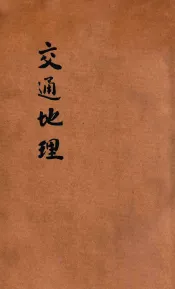 交通地理